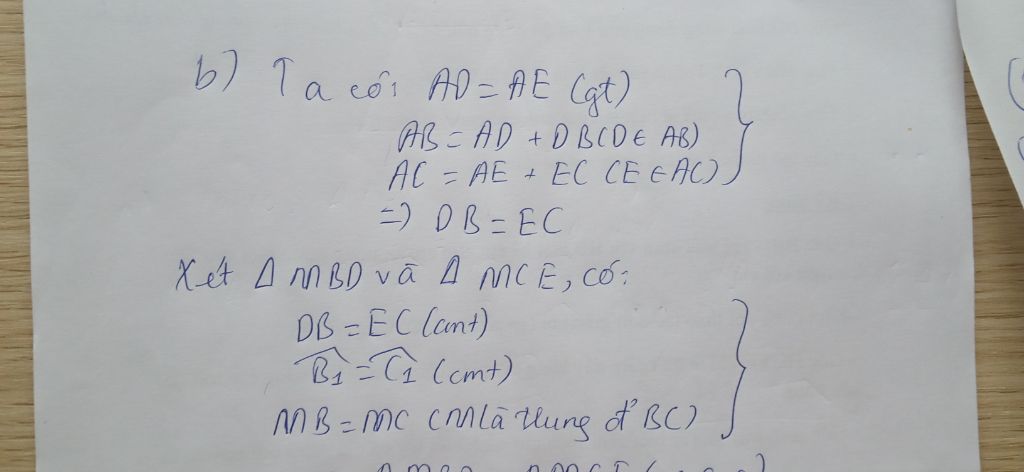 b) Ta có: AD = AE (gt)
AB = AD + DB (D ∈ AB)
AC = AE + EC (E ∈ AC)
=> DB = EC
Xét Δ MBD và Δ MCE, có:
DB = EC (cmt)
B̂1 = Ĉ1 (cmt)
MB = MC (M là trung đ' BC)